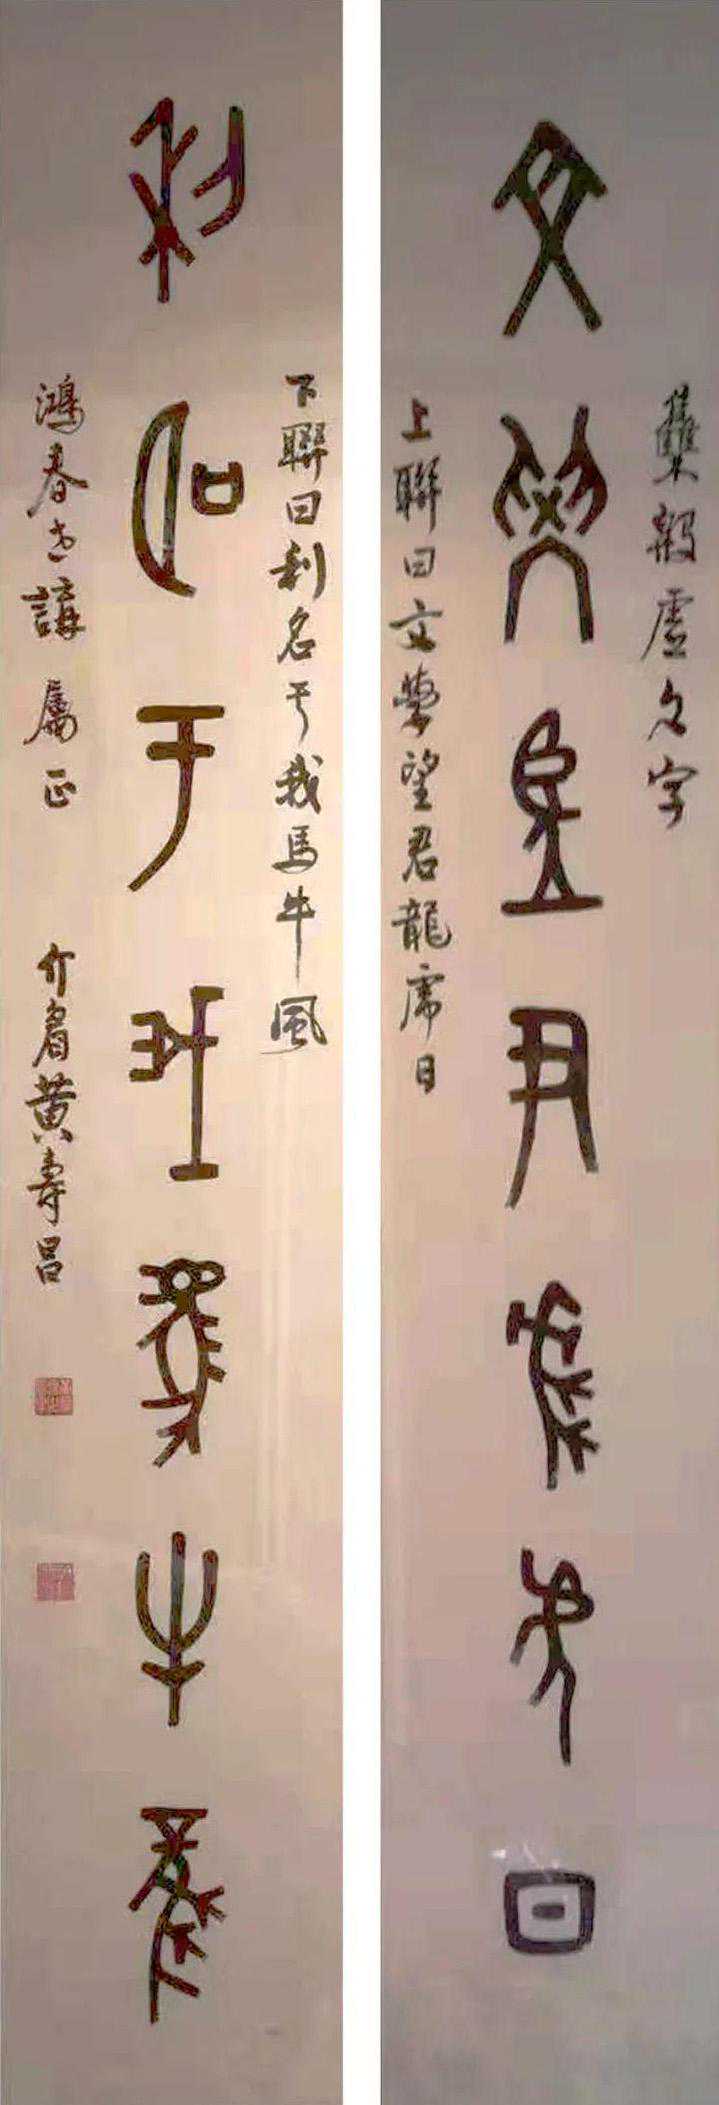 雧殷虛文字
文學望君龍虎日
上聯曰文學望君龍虎日
下聯曰利名于我馬牛風
利名于我馬牛風
鴻春世講屬正 介眉黃壽昌